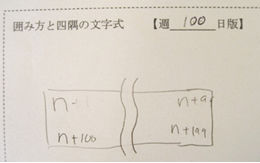 囲み方と四隅の文字式 【週 100 日版】
n
n+100 n+199